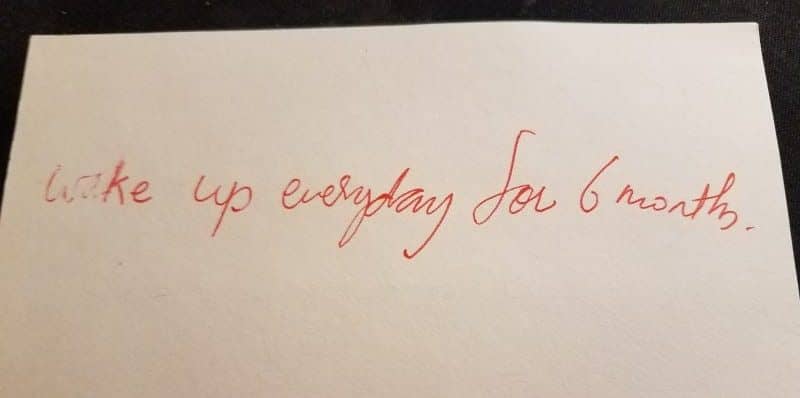 wake up everyday for 6 months.